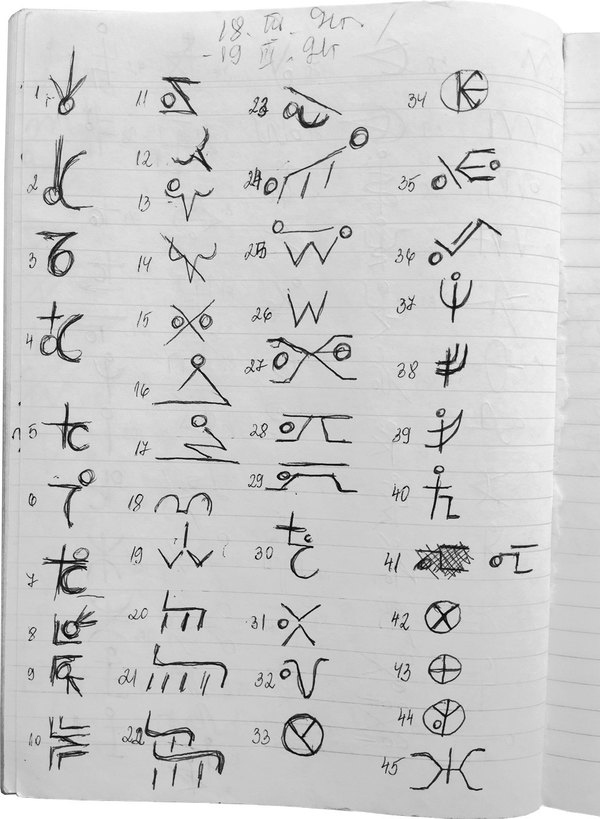 18. III.
-19 III.
1
2
3
4
? 5
6
7
8
9
10
11
12
13
14
15
16
17
18
19
20
21
22
23
24
25
26
27
28
29
30
31
32
33
34
35
36
37
38
39
40
41
42
43
44
45